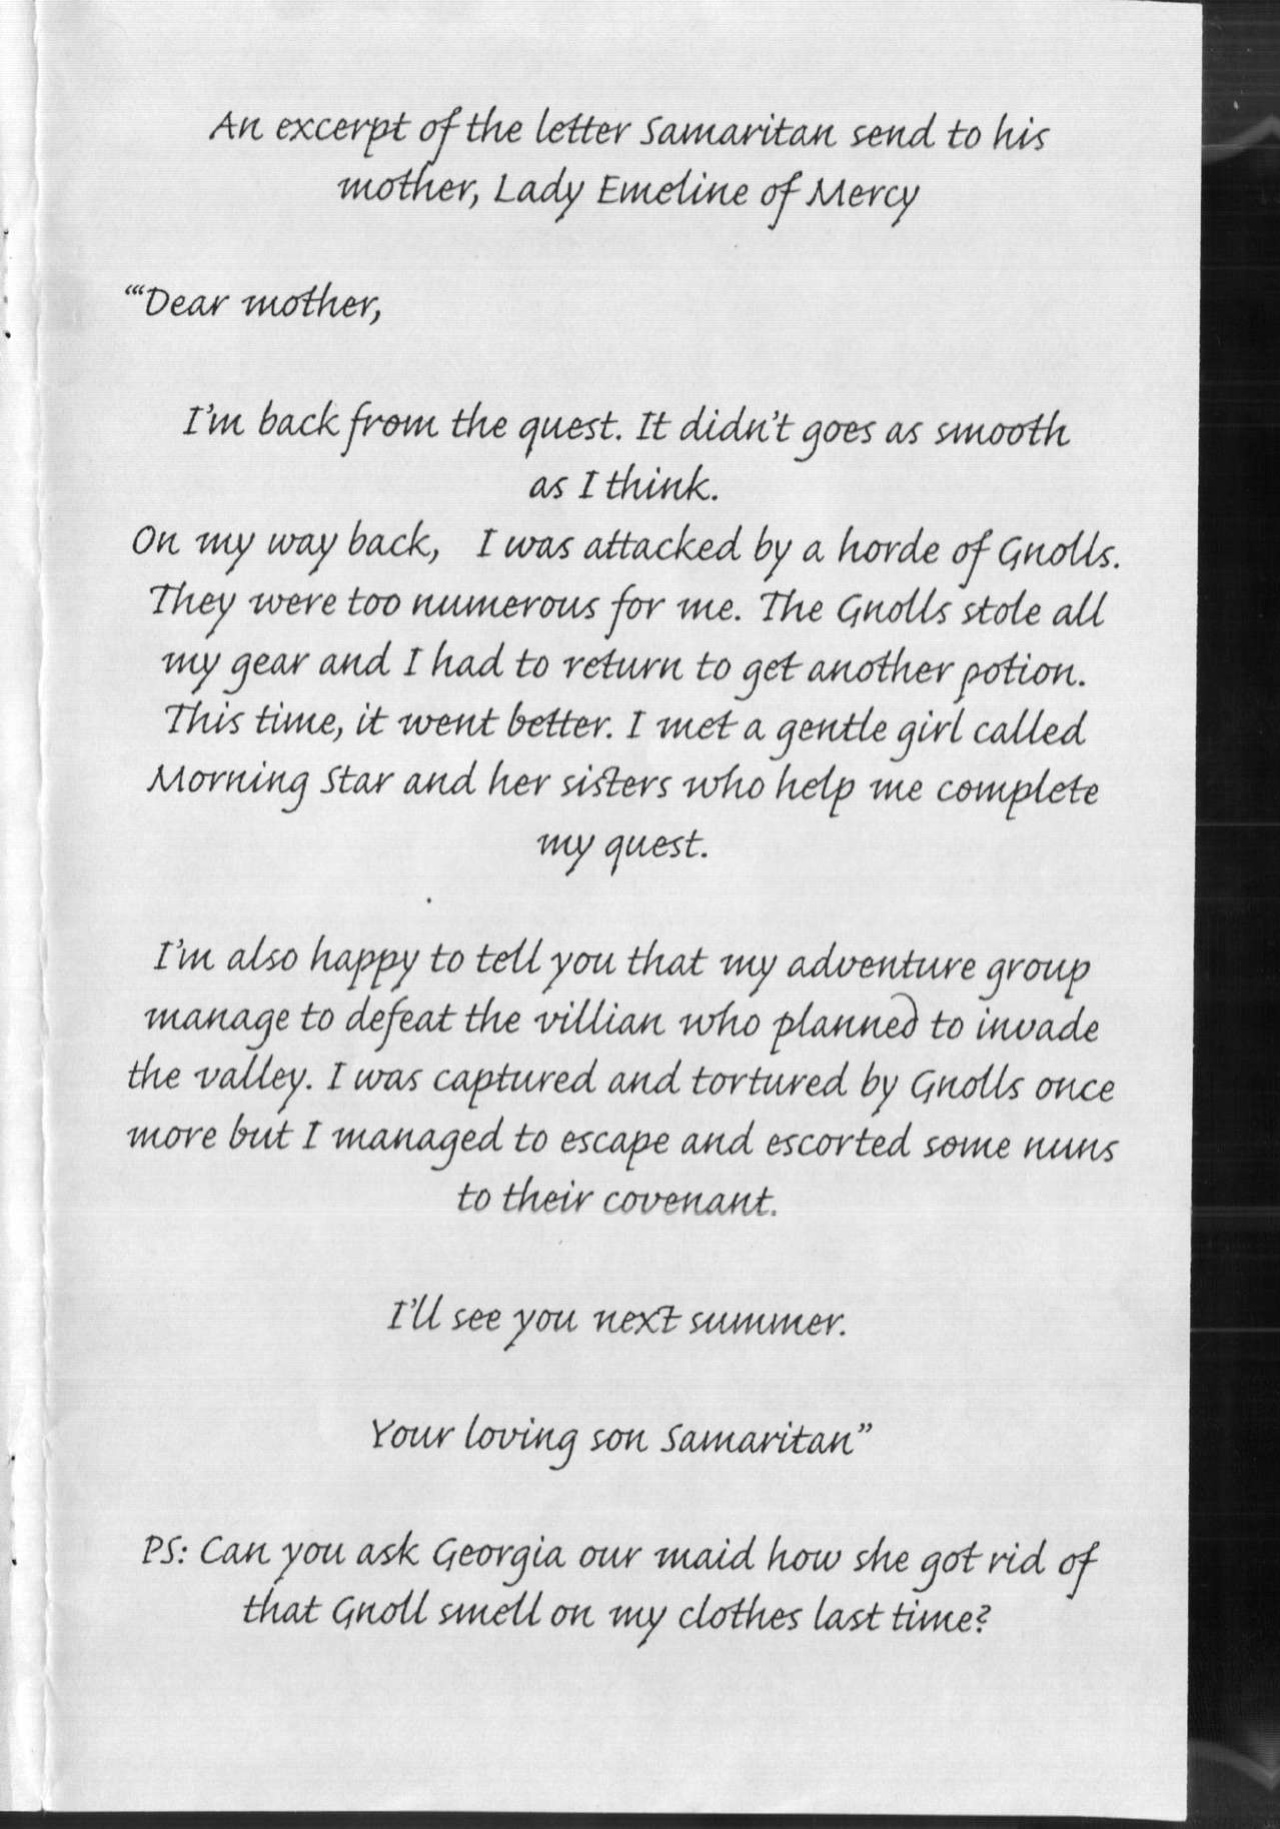 An excerpt of the letter Samaritan send to his
mother, Lady Emeline of Mercy
“‘Dear mother,
I’m back from the quest. It didn’t goes as smooth
as I think.
On my way back, I was attacked by a horde of Gnolls.
They were too numerous for me. The Gnolls stole all
my gear and I had to return to get another potion.
This time, it went better. I met a gentle girl called
Morning Star and her sisters who help me complete
my quest.
I’m also happy to tell you that my adventure group
manage to defeat the villian who planned to invade
the valley. I was captured and tortured by Gnolls once
more but I managed to escape and escorted some nuns
to their covenant.
I’ll see you next summer.
Your loving son Samaritan”
PS: Can you ask Georgia our maid how she got rid of
that Gnoll smell on my clothes last time?